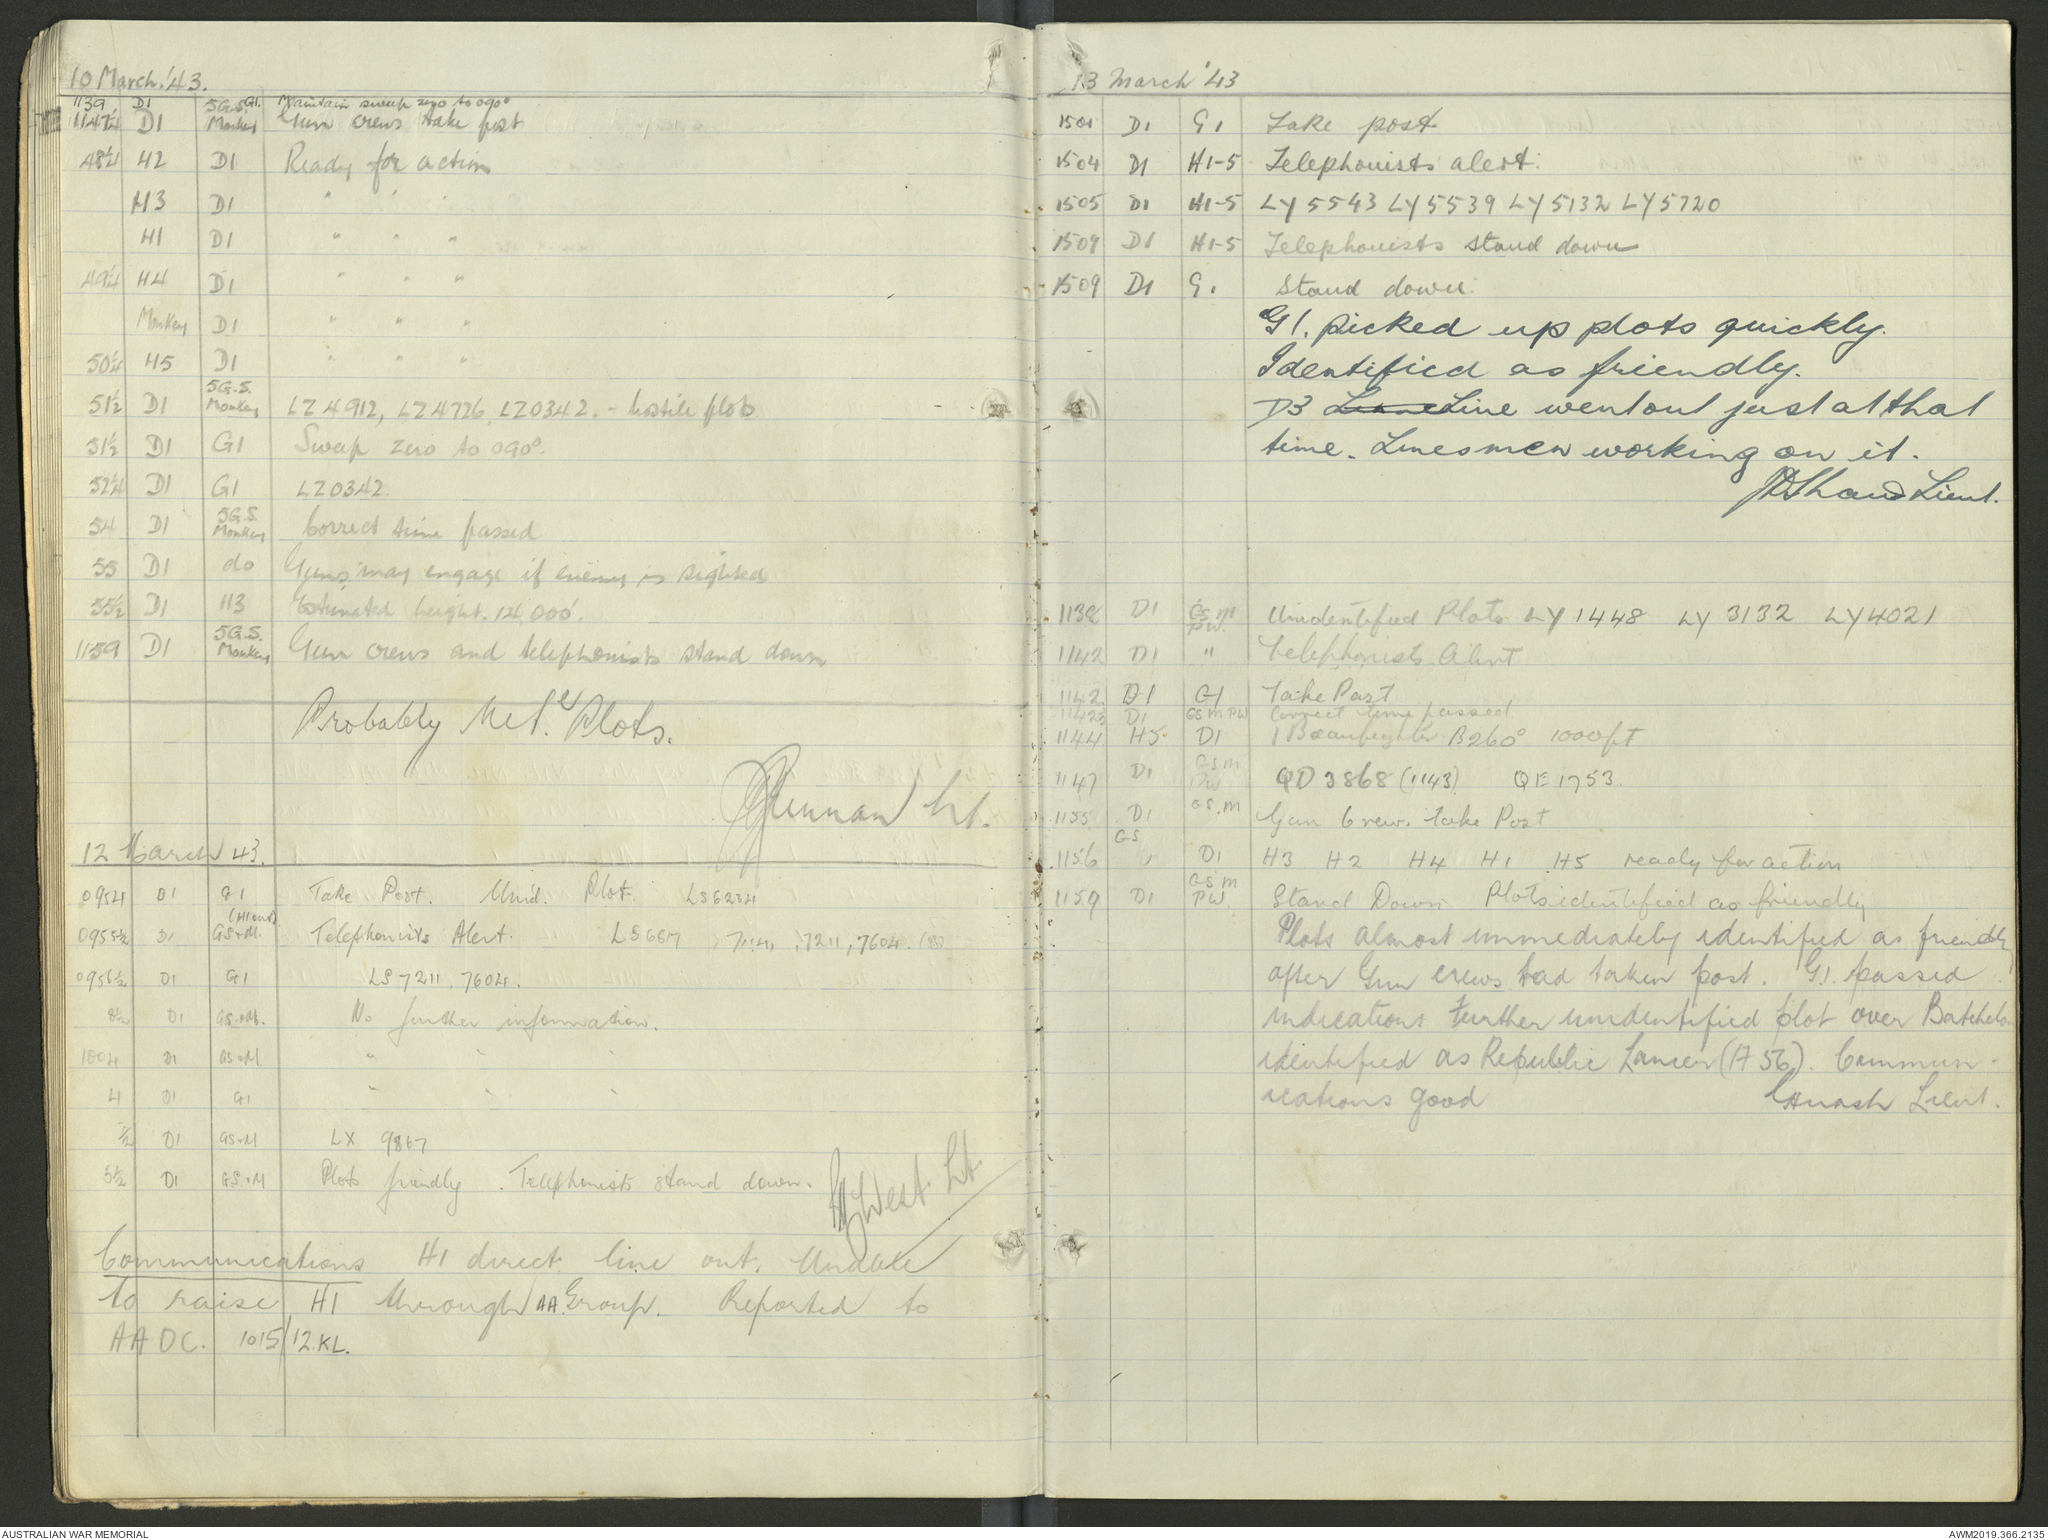 10 March.'43.
1139 D1 5G.S. G1. Maintain sweep zero to 090°
1147¼ D1 Monkey Gun crews take post
48¼ H2 D1 Ready for action
H3 D1 " " "
H1 D1 " " "
49¼ H4 D1 " " "
Monkey D1 " " "
50¼ H5 D1 " " "
51½ D1 5G.S. Monkey LZ4912, LZ4726, LZ0342. - hostile plots
51½ D1 G1 Sweep zero to 090°.
52¼ D1 G1 LZ0342.
54 D1 5G.S. Monkey Correct time passed
55 D1 do Guns may engage if enemy is sighted
55½ D1 H3 Estimated height. 12,000'.
1159 D1 5G.S. Monkey Gun crews and telephonists stand down
Probably Met. Plots.
Lt.
12 March 43.
0954 D1 G1 Take Post. Unid. Plot. LS6234
0955½ D1 GS+M. (H1 out) Telephonists Alert. LS6617 , 7211, 7604
0956½ D1 G1 LS7211, 7604.
8½ D1 GS+M. No further information.
1004 D1 GS+M " " "
4 D1 G1 " " "
½ D1 GS+M LX 9867
5½ D1 GS+M Plots friendly. Telephonists stand down.
West Lt
Communications H1 direct line out. Unable
to raise H1 through AA.Group. Reported to
AADC. 1015/12.KL.
13 March '43
1501 D1 G1 Take post
1504 D1 H1-5 Telephonists alert.
1505 D1 H1-5 LY5543 LY5539 LY5132 LY5720
1509 D1 H1-5 Telephonists stand down
1509 D1 G1 Stand down.
G1. picked up plots quickly.
Identified as friendly.
D3 Line went out just at that
time. Linesmen working on it.
Shaw Lieut.
1138 D1 GS.M PW. Unidentified Plots LY1448 LY3132 LY4021
1142 D1 " Telephonists Alert
1142 D1 G1 Take Post
1142½ D1 GS M PW Correct time passed
1144 H5 D1 1 Beaufighter B260° 1000ft
1147 D1 GSM PW QD3868 (1143) QE1753
1155 D1 GS.M Gun Crew. Take Post
1156 GS D1 H3 H2 H4 H1 H5 ready for action
1159 D1 GSM PW. Stand Down Plots identified as friendly
Plots almost immediately identified as friendly
after Gun crews had taken post. G1. passed
indications further unidentified plot over Batchelor
identified as Republic Lancer (A56). Commun-
ications good Lieut.
AUSTRALIAN WAR MEMORIAL
AWM2019.366.2135